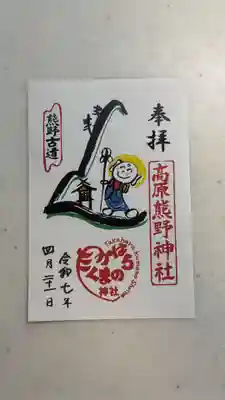 奉拝
高原熊野神社
熊野古道
Takahara Kumano Shrine
たかはら
くまの
神社
令和七年
四月二十一日